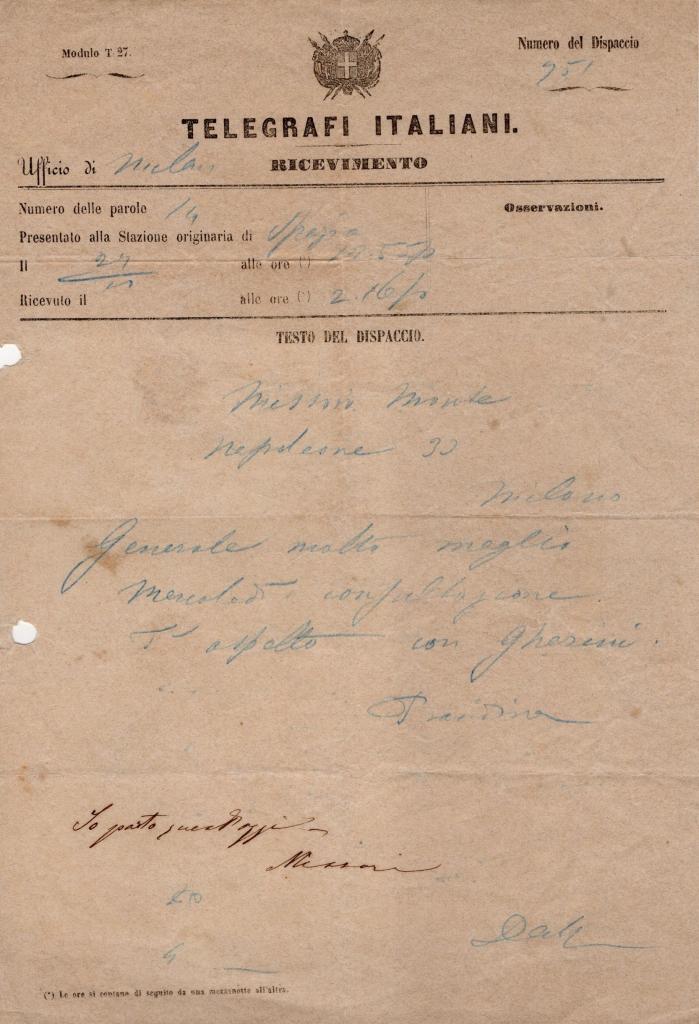 Modulo T. 27.
Numero del Dispaccio
951
TELEGRAFI ITALIANI.
Ufficio di Milano
RICEVIMENTO
Numero delle parole 14
Osservazioni.
Presentato alla Stazione originaria di
Il 24 alle ore (*) 12.55p
Ricevuto il alle ore (*) 2.16p
TESTO DEL DISPACCIO.
Missori Monte
Napoleone 33
Milano
Generale molto meglio
Mercoledì consultazione.
T'aspetto con Gherini.
Prandina
Io parto quest'oggi
Missori
(*) Le ore si contano di seguito da una mezzanotte all'altra.